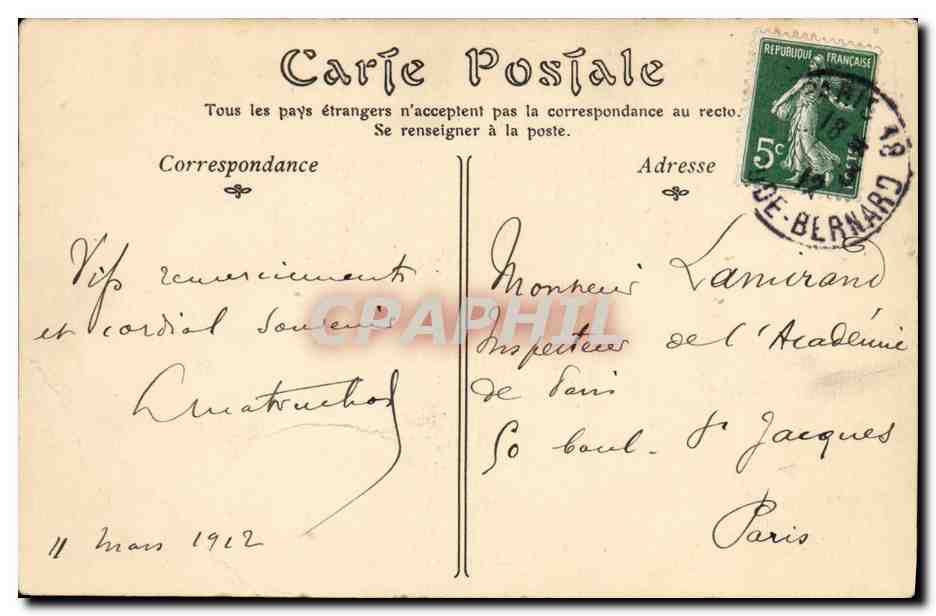 Carte Postale
Tous les pays étrangers n'acceptent pas la correspondance au recto.
Se renseigner à la poste.
Correspondance
Vifs remerciements
et cordial souvenir
11 Mars 1912
Adresse
Monsieur Lamirand
Inspecteur de l'Académie
de Paris
50 boul. St Jacques
Paris
REPUBLIQUE FRANÇAISE
5c
PARIS 18
18
12
DE-BERNARD
CPAPHIL